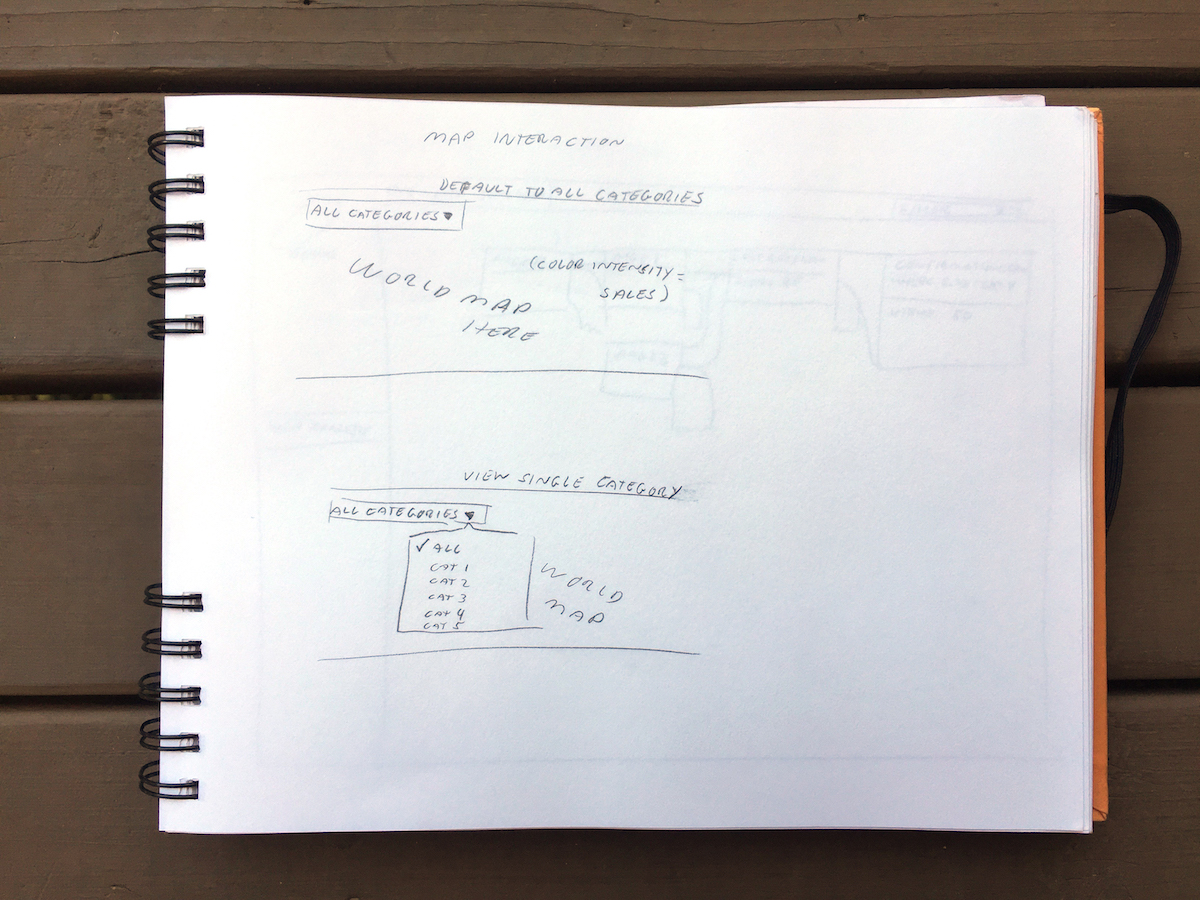 MAP INTERACTION
DEFAULT TO ALL CATEGORIES
ALL CATEGORIES
(COLOR INTENSITY =
SALES)
WORLD MAP
HERE
VIEW SINGLE CATEGORY
ALL CATEGORIES
✓ ALL
CAT 1
CAT 2
CAT 3
CAT 4
CAT 5
WORLD
MAP